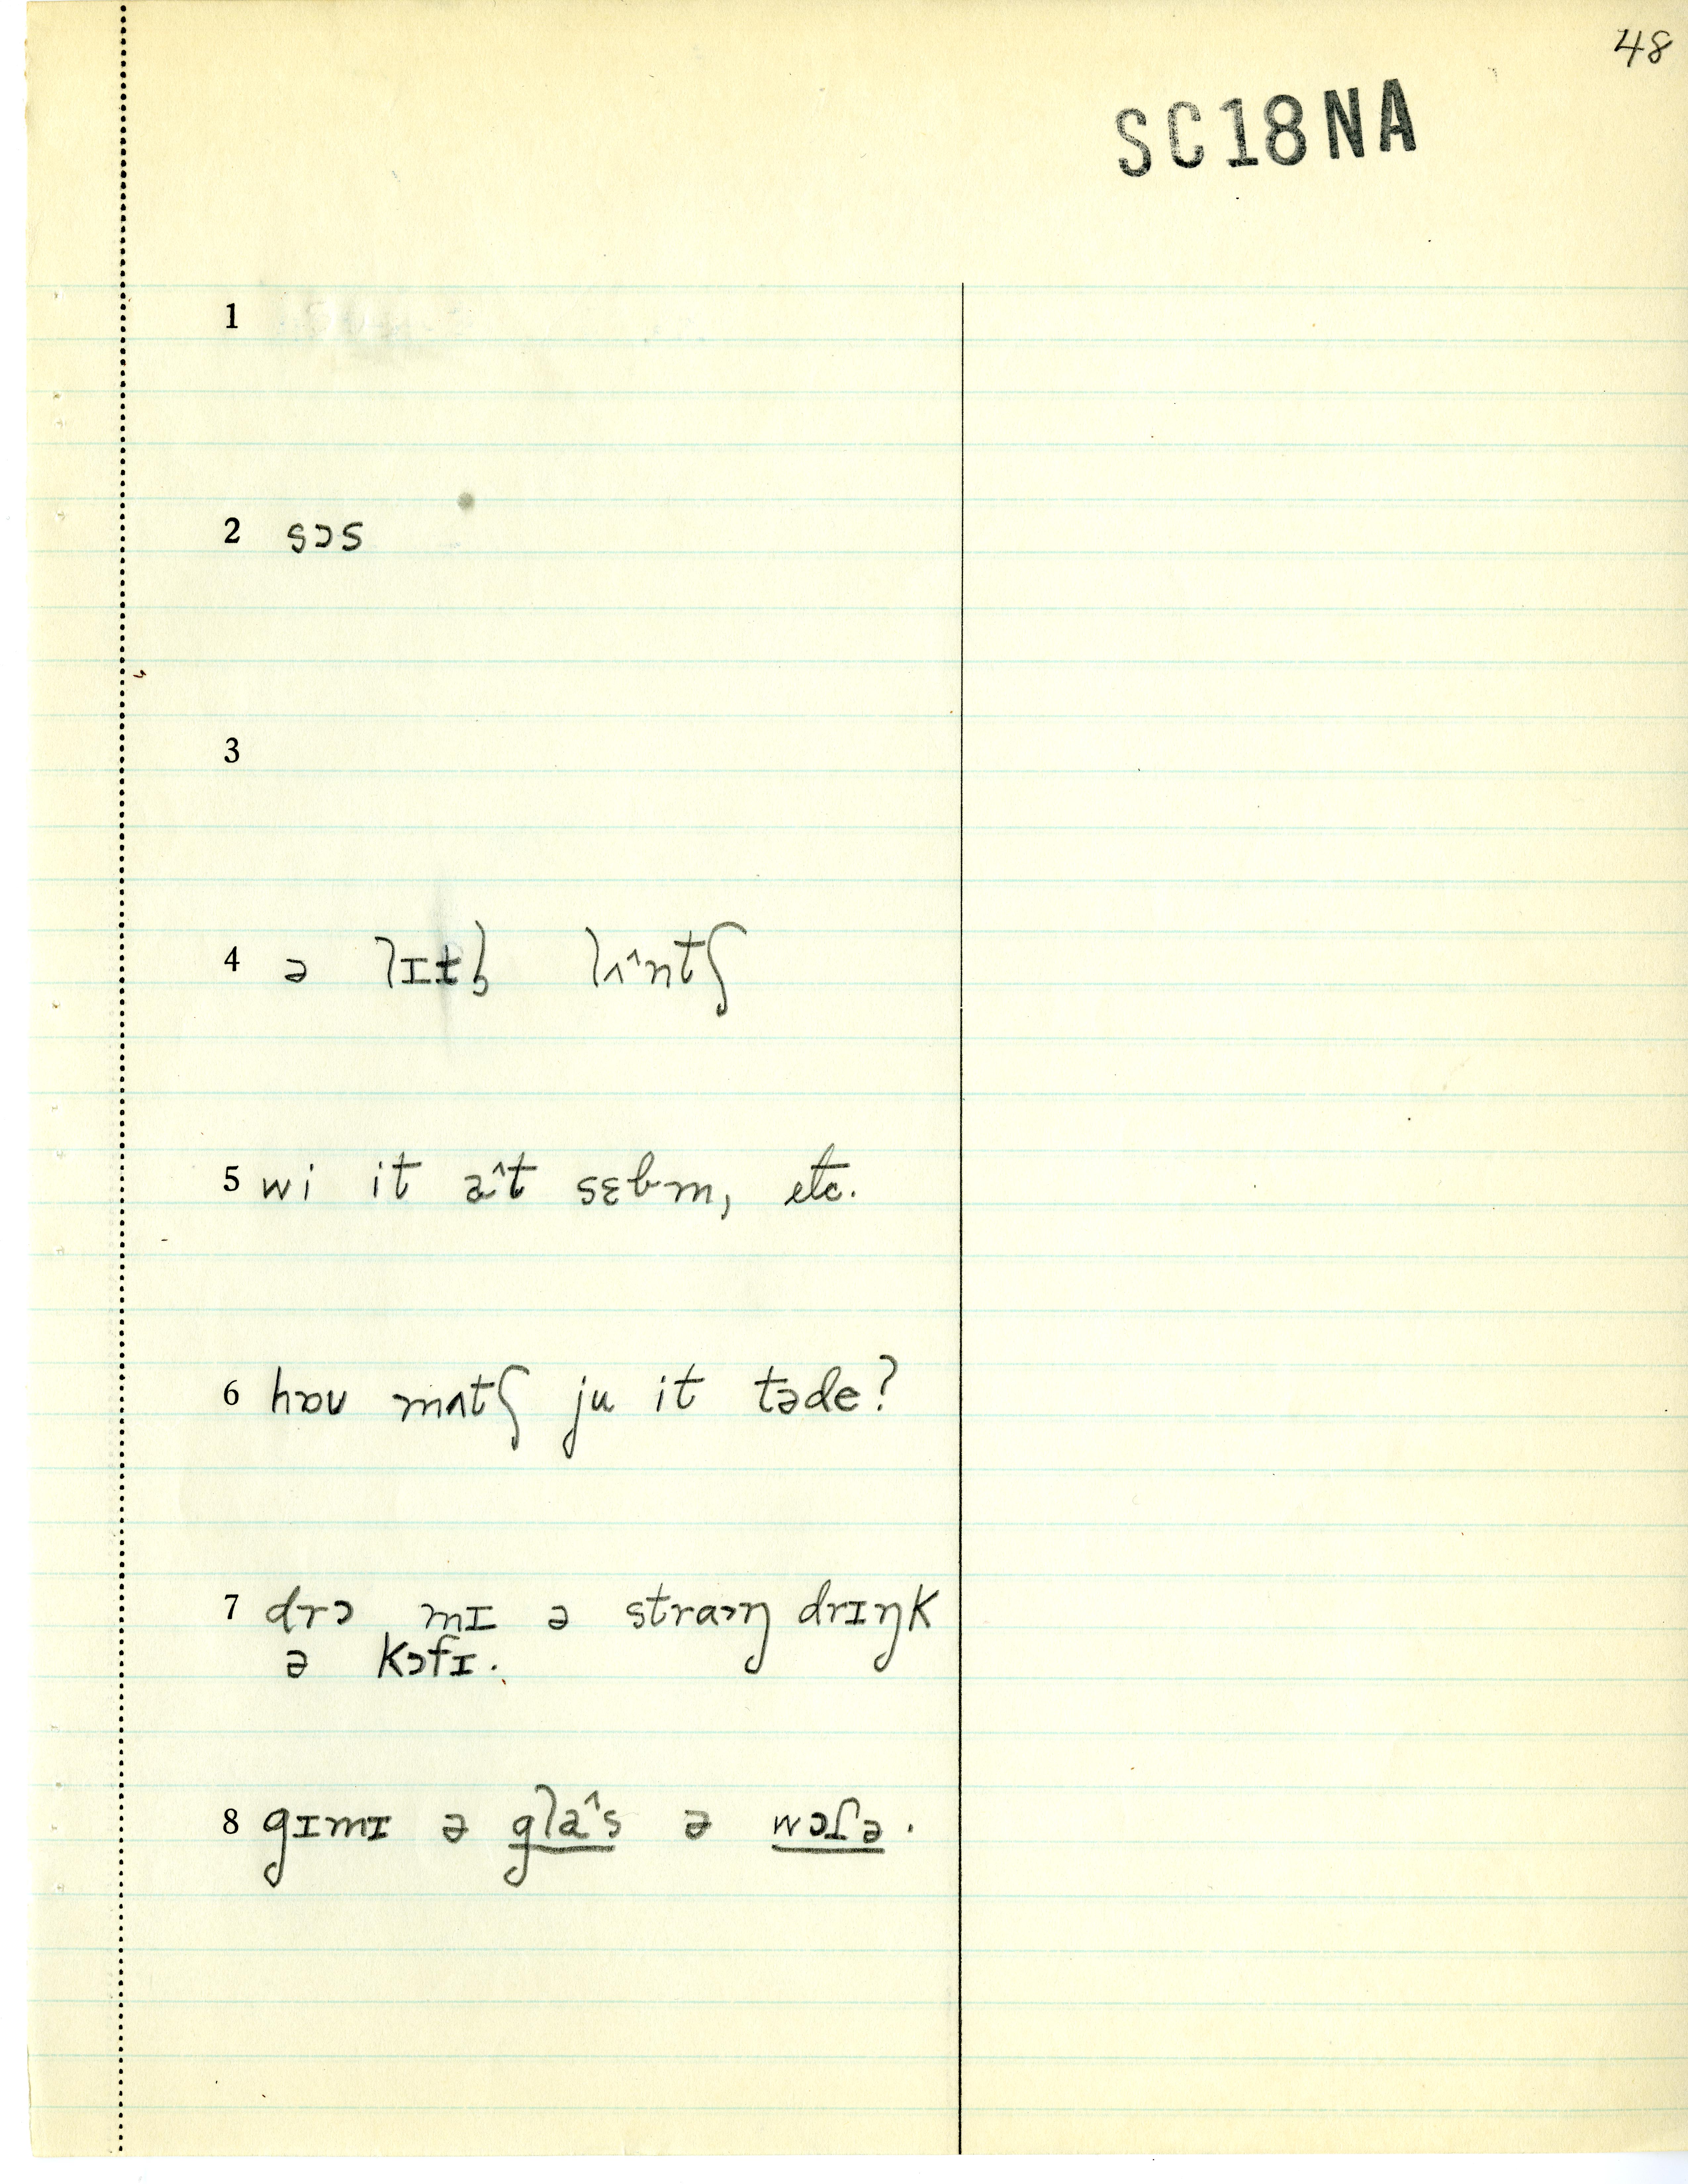 48
SC18NA
1
2 sɔs
3
4 ə lɪtl̩ lʌ^ntʃ
5 wi it a^t sɛbm, etc.
6 hɒʊ mʌtʃ ju it təde?
7 drɔ mɪ ə straɔŋ drɪŋk
ə kɔfɪ.
8 gɪmɪ ə gla^s ə wɔɾə.